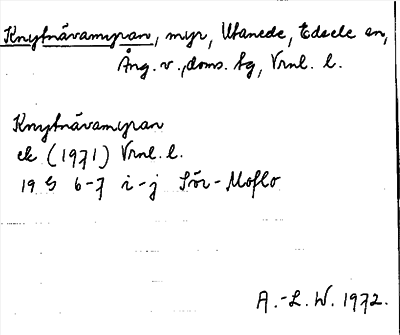 Knytnävamyran, myr, Utanede, Edsele sn,
Ång. v., doms. tg, Vrnl. l.
Knytnävamyran
ek (1971) Vrnl. l.
19 G 6-7 i-j Sör-Moflo
A.-L. W. 1972.